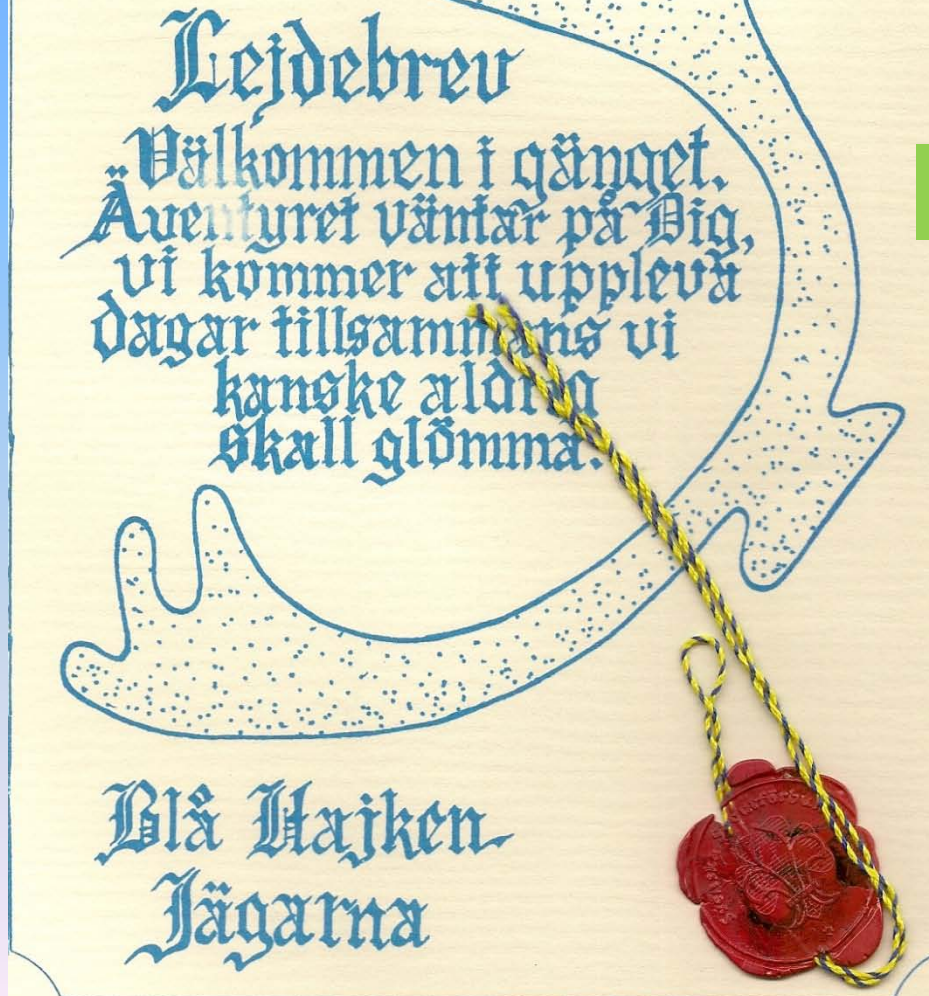 Lejdebrev
Välkommen i gänget.
Äventyret väntar på Dig,
vi kommer att uppleva
dagar tillsammans vi
kanske aldrig
skall glömma.
Blå Hajken
Jägarna